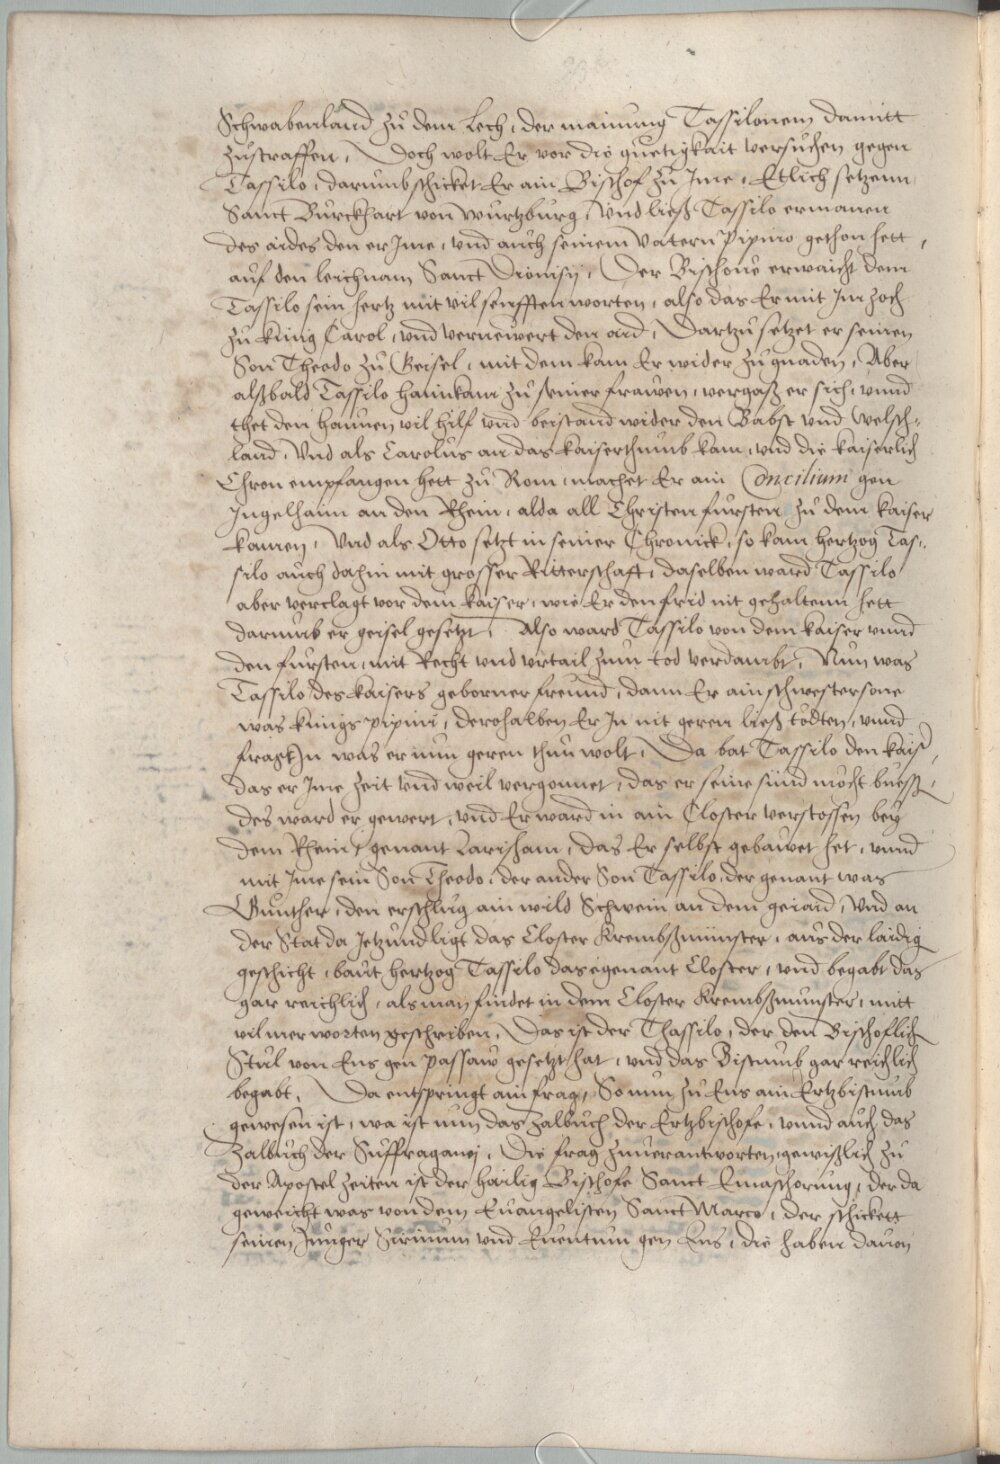 Schwabenland zu dem Lech, der mainung Tassilonem damitt
zustraffen, Doch wolt Er vor die guetigkait versuchen gegen
Tassilo, darumb schicket Er ain Bischof zu Ime, Etlich setzenn
Sanct Burckhart von Wurtzburg, Vnd ließ Tassilo ermanen
des aides den er Ime, vnd auch seinem Vatern Pipino gethon hett,
auf den leichnam Sanct Dionisij, Der Bischoue erwaicht dem
Tassilo sein hertz mit vil sennfften worten, also das Er mit Im zoch
zu King Carol, vnd vernewert den aid, Dartzu setzet er seinen
Son Theodo zu Geisel, mit dem kam Er wider zu gnaden, Aber
alßbald Tassilo haimkam zu seiner frawen, vergaß er sich, vnnd
thet den haunen vil hilf vnd beistand wider den Babst vnd welsch-
land, Vnd als Carolus an das kaiserthumb kam, vnd die kaiserlich
Chron empfangen hett zu Rom, machet Er ain Concilium gen
Ingelhaim an den Rhein, alda all Christen fursten zu dem kaiser
kamen, Vnd als Otto setzt in seiner Chronick, so kam hertzog Tas-
silo auch dahin mit grosser Ritterschaft, daselben ward Tassilo
aber verclagt vor dem kaiser, wie Er den frid nit gehaltenn hett
darumb er geisel gesetzt, Also ward Tassilo von dem kaiser vnnd
den fursten, mit Recht vnd vrtail zum tod verdambt, Nun was
Tassilo des kaisers geborner freund, dann Er ain schwestersone
was kinigs Pipini, derohalben Er In nit geren ließ tödten, vnnd
fragt In was er nun geren thun wolt, Da bat Tassilo den kaiser,
das er Ime zeit vnd weil vergonnet, das er seine sünd möcht buessen,
des ward er gewert, vnd Er ward in ain Closter verstossen bey
dem Rhein, genant Larisham, das Er selbst gebawet het, vnnd
mit Ime sein Son Theodo, der ander Son Tassilo, der genant was
Gunther, den erschlug ain wild Schwein an dem geiaid, Vnd an
der Stat da Jetzund ligt das Closter Krembßmünster, aus der laidig
geschicht, baut hertzog Tassilo das egenant Closter, vnd begabt das
gar reichlich, als man findet in dem Closter Krembßmunster, mitt
vil mer worten geschriben, Das ist der Thassilo, der den Bischoflich
Stul von Ens gen Passaw gesetzt hat, vnd das Bistumb gar reichlich
begabt, Da entspringt ain frag, So nun zu Ens ain Ertzbistumb
gewesen ist, wa ist nun das zalbuch der Ertzbischofe, vnnd auch das
zalbuch der Suffraganej, Die frag zuuerantworten, gewißlich zu
der Apostel zeiten ist der hailig Bischofe Sanct Emaschorung, der da
geweicht was von dem Euangelisten Sanct Marco, der schickett
seinen Junger Sirinum vnd Euentum gen Ens, die haben dauon